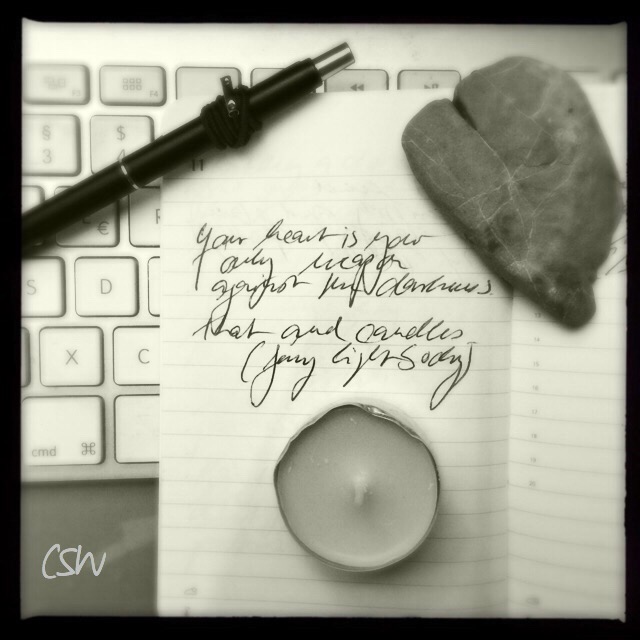 F4
§ $
3
11
€ R
Your heart is your
only weapon
against the darkness.
S D
that and candles.
X C
(Gary Lightbody)
cmd ⌘
CSW